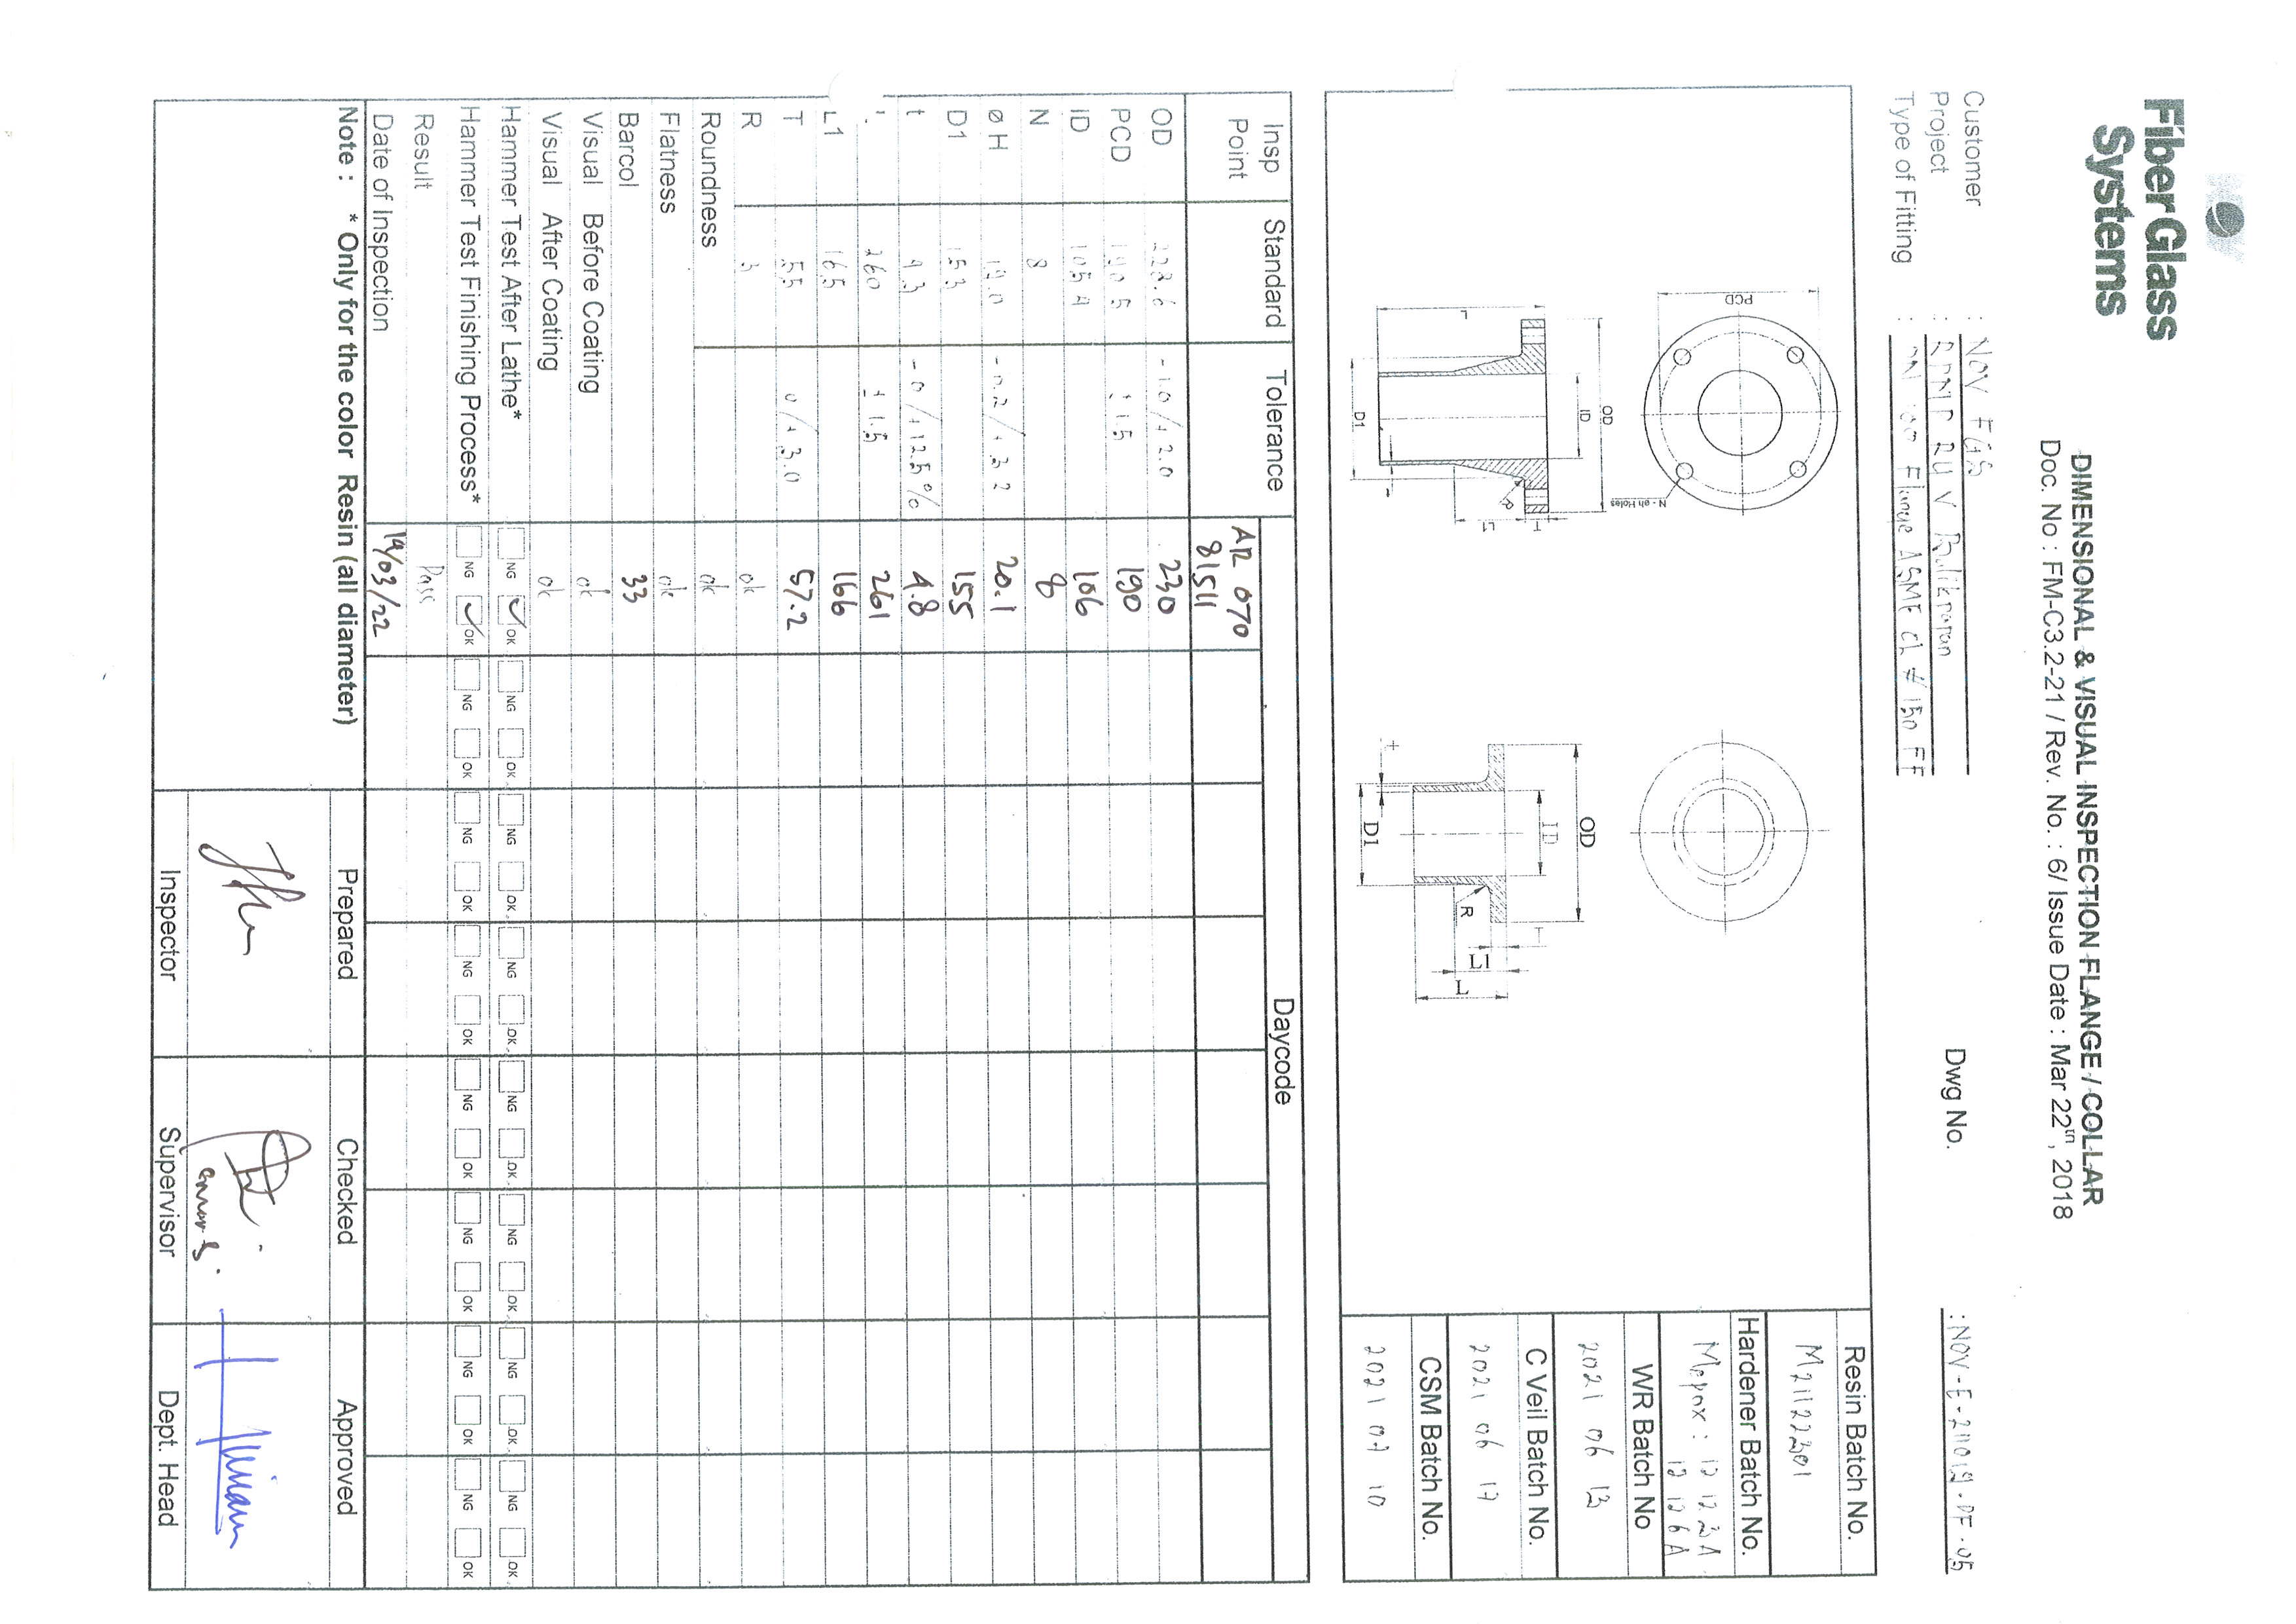 FiberGlass
Systems
DIMENSIONAL & VISUAL INSPECTION FLANGE / COLLAR
Doc. No : FM-C3.2-21 / Rev. No. : 6/ Issue Date : Mar 22th, 2018
Customer : NOV FGS
Project : RDMP RU V Balikpapan
Type of Fitting : DN 100 Flange ASME cl #150 FF
Dwg No. : NOV-E-211019-DF-05
PCD
N - øh Holes
OD
ID
L
D1
R
T
L1
OD
ID
t
D1
R
T
L1
L
Resin Batch No.
M21122301
Hardener Batch No.
Mepox : 12 12 23A
12 126A
WR Batch No
2021 06 13
C Veil Batch No.
2021 06 17
CSM Batch No.
2021 07 10
Insp Point Standard Tolerance Daycode
AR 070
81511
OD 228.6 -1.0/+2.0 230
PCD 190.5 ±1.5 190
ID 105.4 106
N 8 8
ø H 19.0 -0.2/+3.2 20.1
D1 153 155
t 4.3 -0/+12.5% 4.8
260 ±1.5 261
L1 165 166
T 55 0/+3.0 57.2
R 3 ok
Roundness ok
Flatness ok
Barcol 33
Visual Before Coating ok
Visual After Coating ok
Hammer Test After Lathe* NG ✓ OK NG OK NG OK NG OK NG OK NG OK NG OK NG OK
Hammer Test Finishing Process* NG ✓ OK NG OK NG OK NG OK NG OK NG OK NG OK NG OK
Result Pass
Date of Inspection 14/03/22
Note : * Only for the color Resin (all diameter)
Prepared Checked Approved
Inspector Supervisor Dept. Head